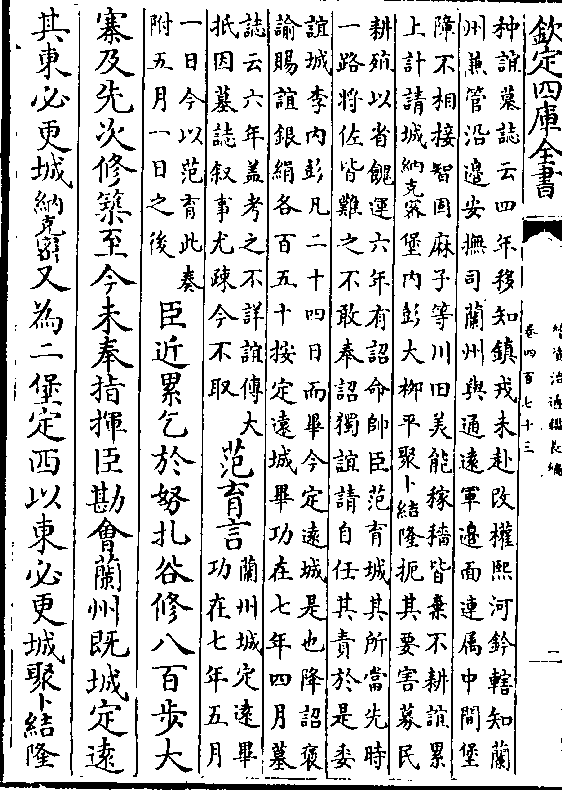 欽定四庫全書
續資治通鑑長編
卷四百七十三
二
种誼墓誌云四年移知鎮戎未赴改權熙河鈐轄知蘭
州兼管沿邊安撫司蘭州與通遠軍邊面連属中間堡
障不相接智固麻子等川田美能稼穡皆棄不耕誼累
上計請城納克密堡内彭大柳平聚卜結隆扼其要害募民
耕殖以省餽運六年有詔命帥臣范育城其所當先時
一路將佐皆難之不敢奉詔獨誼請自任其責於是委
誼城李内彭凡二十四日而畢今定遠城是也降詔褒
諭賜誼銀絹各百五十按定遠城畢功在七年四月墓
誌云六年盖考之不詳誼傳大
抵因墓誌叙事尤疎今不取
范育言
蘭州城定遠畢
功在七年五月
一日今以范育此奏
附五月一日之後
臣近累乞於努扎谷修八百步大
寨及先次修築至今未奉指揮臣勘會蘭州既城定遠
其東必更城納克密又為二堡定西以東必更城聚卜結隆